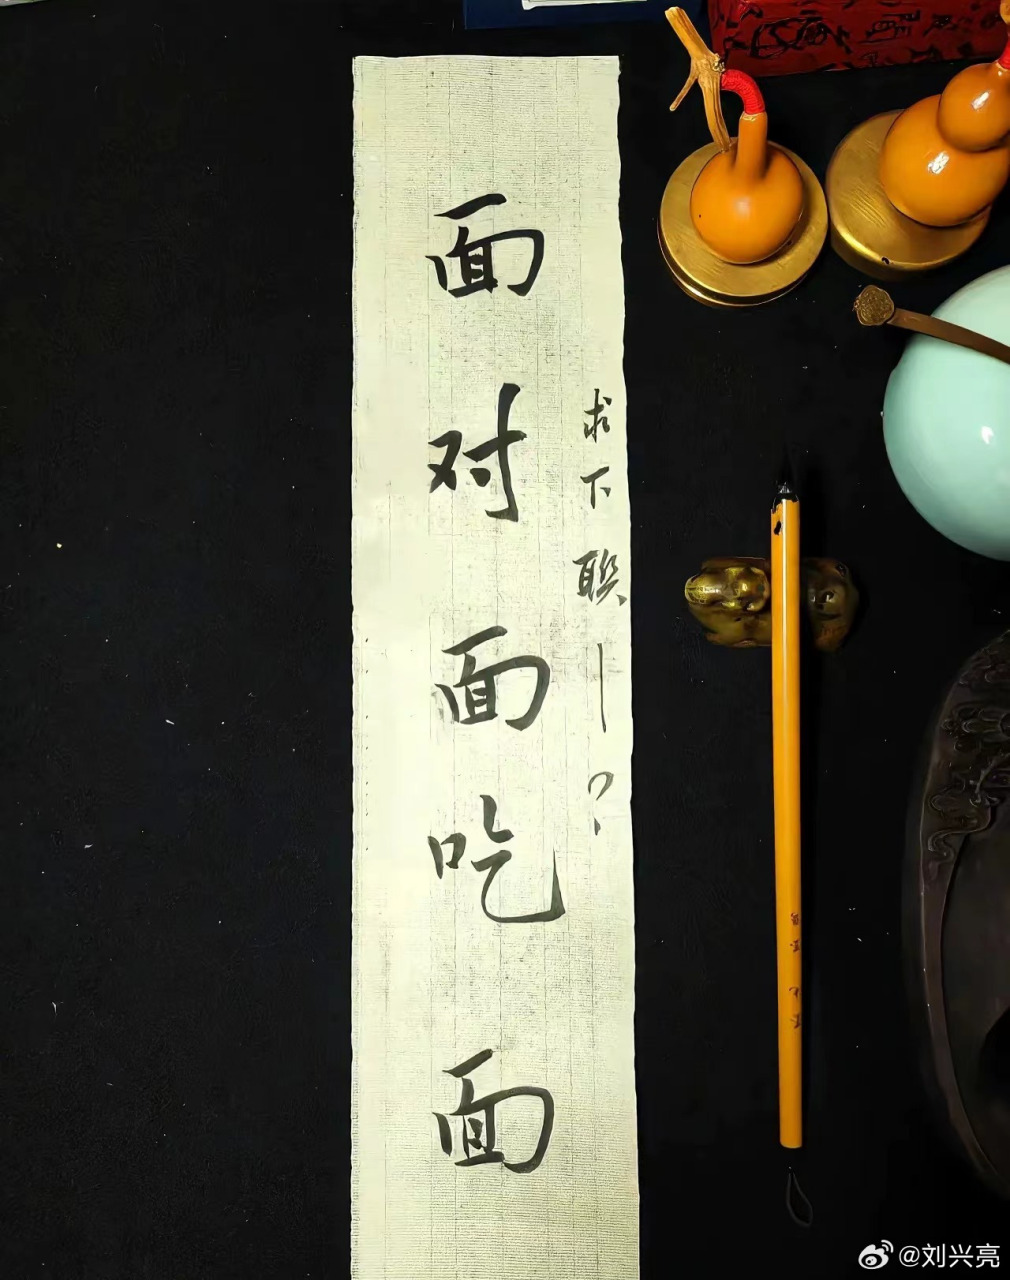 求下联——?
面对面吃面
@刘兴亮